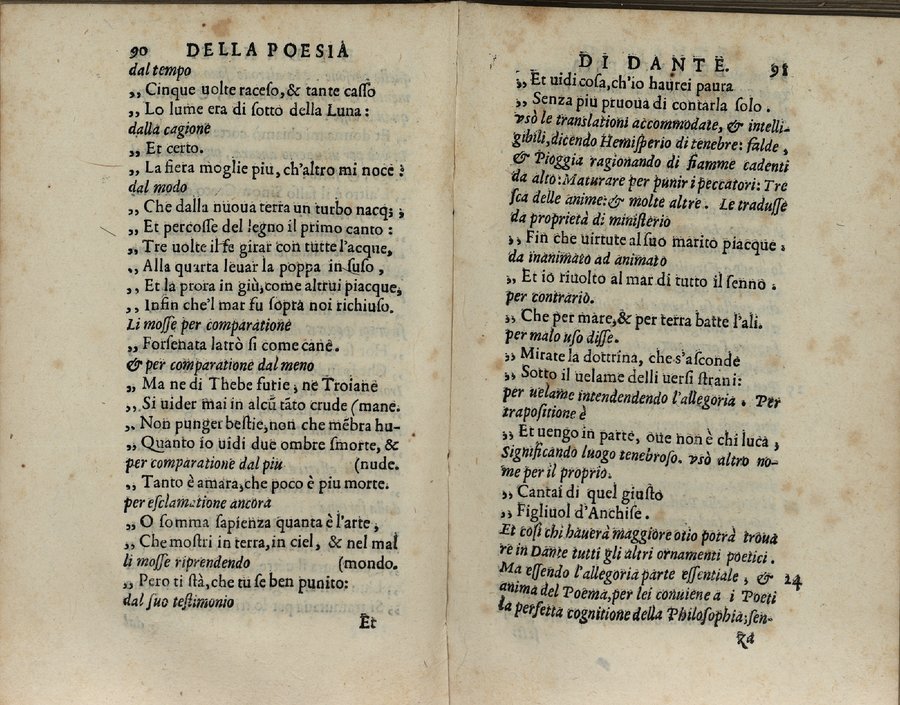 90 DELLA POESIA
dal tempo
„ Cinque uolte raceſo, & tante caſſo
„ Lo lume era di ſotto della Luna:
dalla cagione
„ Et certo.
„ La fiera moglie piu, ch'altro mi noce:
dal modo
„ Che dalla nuoua terra un turbo nacq;,
„ Et percoſſe del legno il primo canto:
„ Tre uolte il fe girar con tutte l'acque,
„ Alla quarta leuar la poppa in ſuſo,
„ Et la prora in giù, come altrui piacque,
„ Infin che'l mar fu ſopra noi richiuſo.
Li moſſe per comparatione
„ Forſenata latrò ſi come cane.
& per comparatione dal meno
„ Ma ne di Thebe furie, ne Troiane
„ Si uider mai in alcũ tãto crude (mane.
„ Non punger beſtie, non che mẽbra hu-
„ Quanto io uidi due ombre ſmorte, &
per comparatione dal piu (nude.
„ Tanto è amara, che poco è piu morte.
per eſclamatione ancora
„ O ſomma ſapienza quanta è l'arte,
„ Che moſtri in terra, in ciel, & nel mal
li moſſe riprendendo (mondo.
„ Pero ti ſtà, che tu ſe ben punito:
dal ſuo teſtimonio
Et
DI DANTE. 91
„ Et uidi coſa, ch'io haurei paura
„ Senza piu pruoua di contarla ſolo.
vsò le translationi accommodate, & intelli-
gibili, dicendo Hemiſperio di tenebre: falde,
& Pioggia ragionando di fiamme cadenti
da alto: Maturare per punir i peccatori: Tre
ſca delle anime: & molte altre. Le traduſſe
da proprietà di miniſterio
„ Fin che uirtute al ſuo marito piacque.
da inanimato ad animato
„ Et io riuolto al mar di tutto il ſenno.
per contrario.
„ Che per mare, & per terra batte l'ali.
per malo uſo diſſe.
„ Mirate la dottrina, che s'aſconde
„ Sotto il uelame delli uerſi ſtrani:
per uelame intendendendo l'allegoria. Per
trapoſitione è
„ Et uengo in parte, oue non è chi luca,
Significando luogo tenebroſo. vsò altro no-
me per il proprio.
„ Cantai di quel giuſto
„ Figliuol d'Anchiſe.
Et coſi chi hauerà maggiore otio potrà troua
re in Dante tutti gli altri ornamenti poetici.
Ma eſſendo l'allegoria parte eſſentiale, & 24
anima del Poema, per lei conuiene a i Poeti
la perfetta cognitione della Philoſophia; ſen-
za